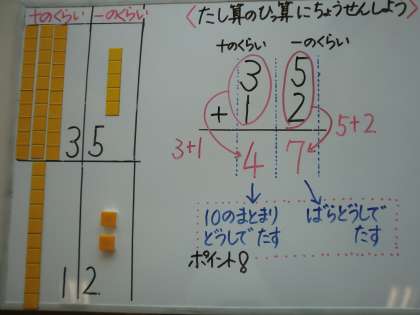 十のくらい 一のくらい
3 5
1 2
〈たし算のひっ算にちょうせんしよう〉
十のくらい 一のくらい
3 5
+ 1 2
3+1 5+2
4 7
10のまとまり
どうしで
たす
ばらどうしで
たす
ポイント8